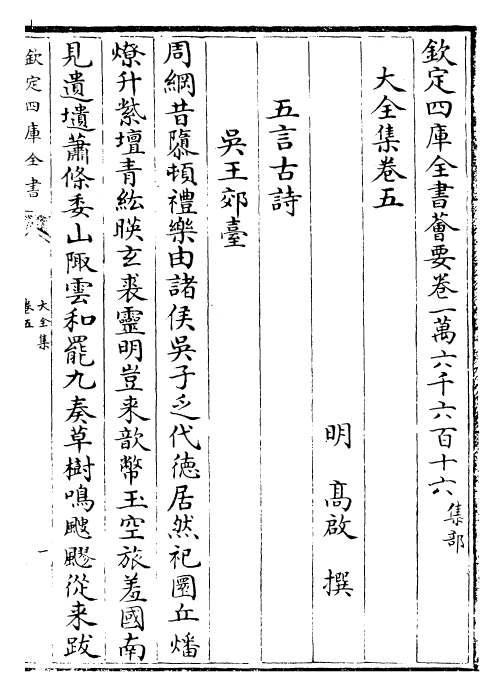 欽定四庫全書薈要卷一萬六千六百十六集部
大全集卷五
明 高啟 撰
五言古詩
吳王郊臺
周綱昔隳頓禮樂由諸侯吳子乏代徳居然祀圜丘燔
燎升紫壇青紘暎玄裘靈明豈来歆幣玉空旅羞國南
見遺壝蕭條委山陬雲和罷九奏草樹鳴颼飀從来跋
欽定四庫全書
大全集
卷五
一